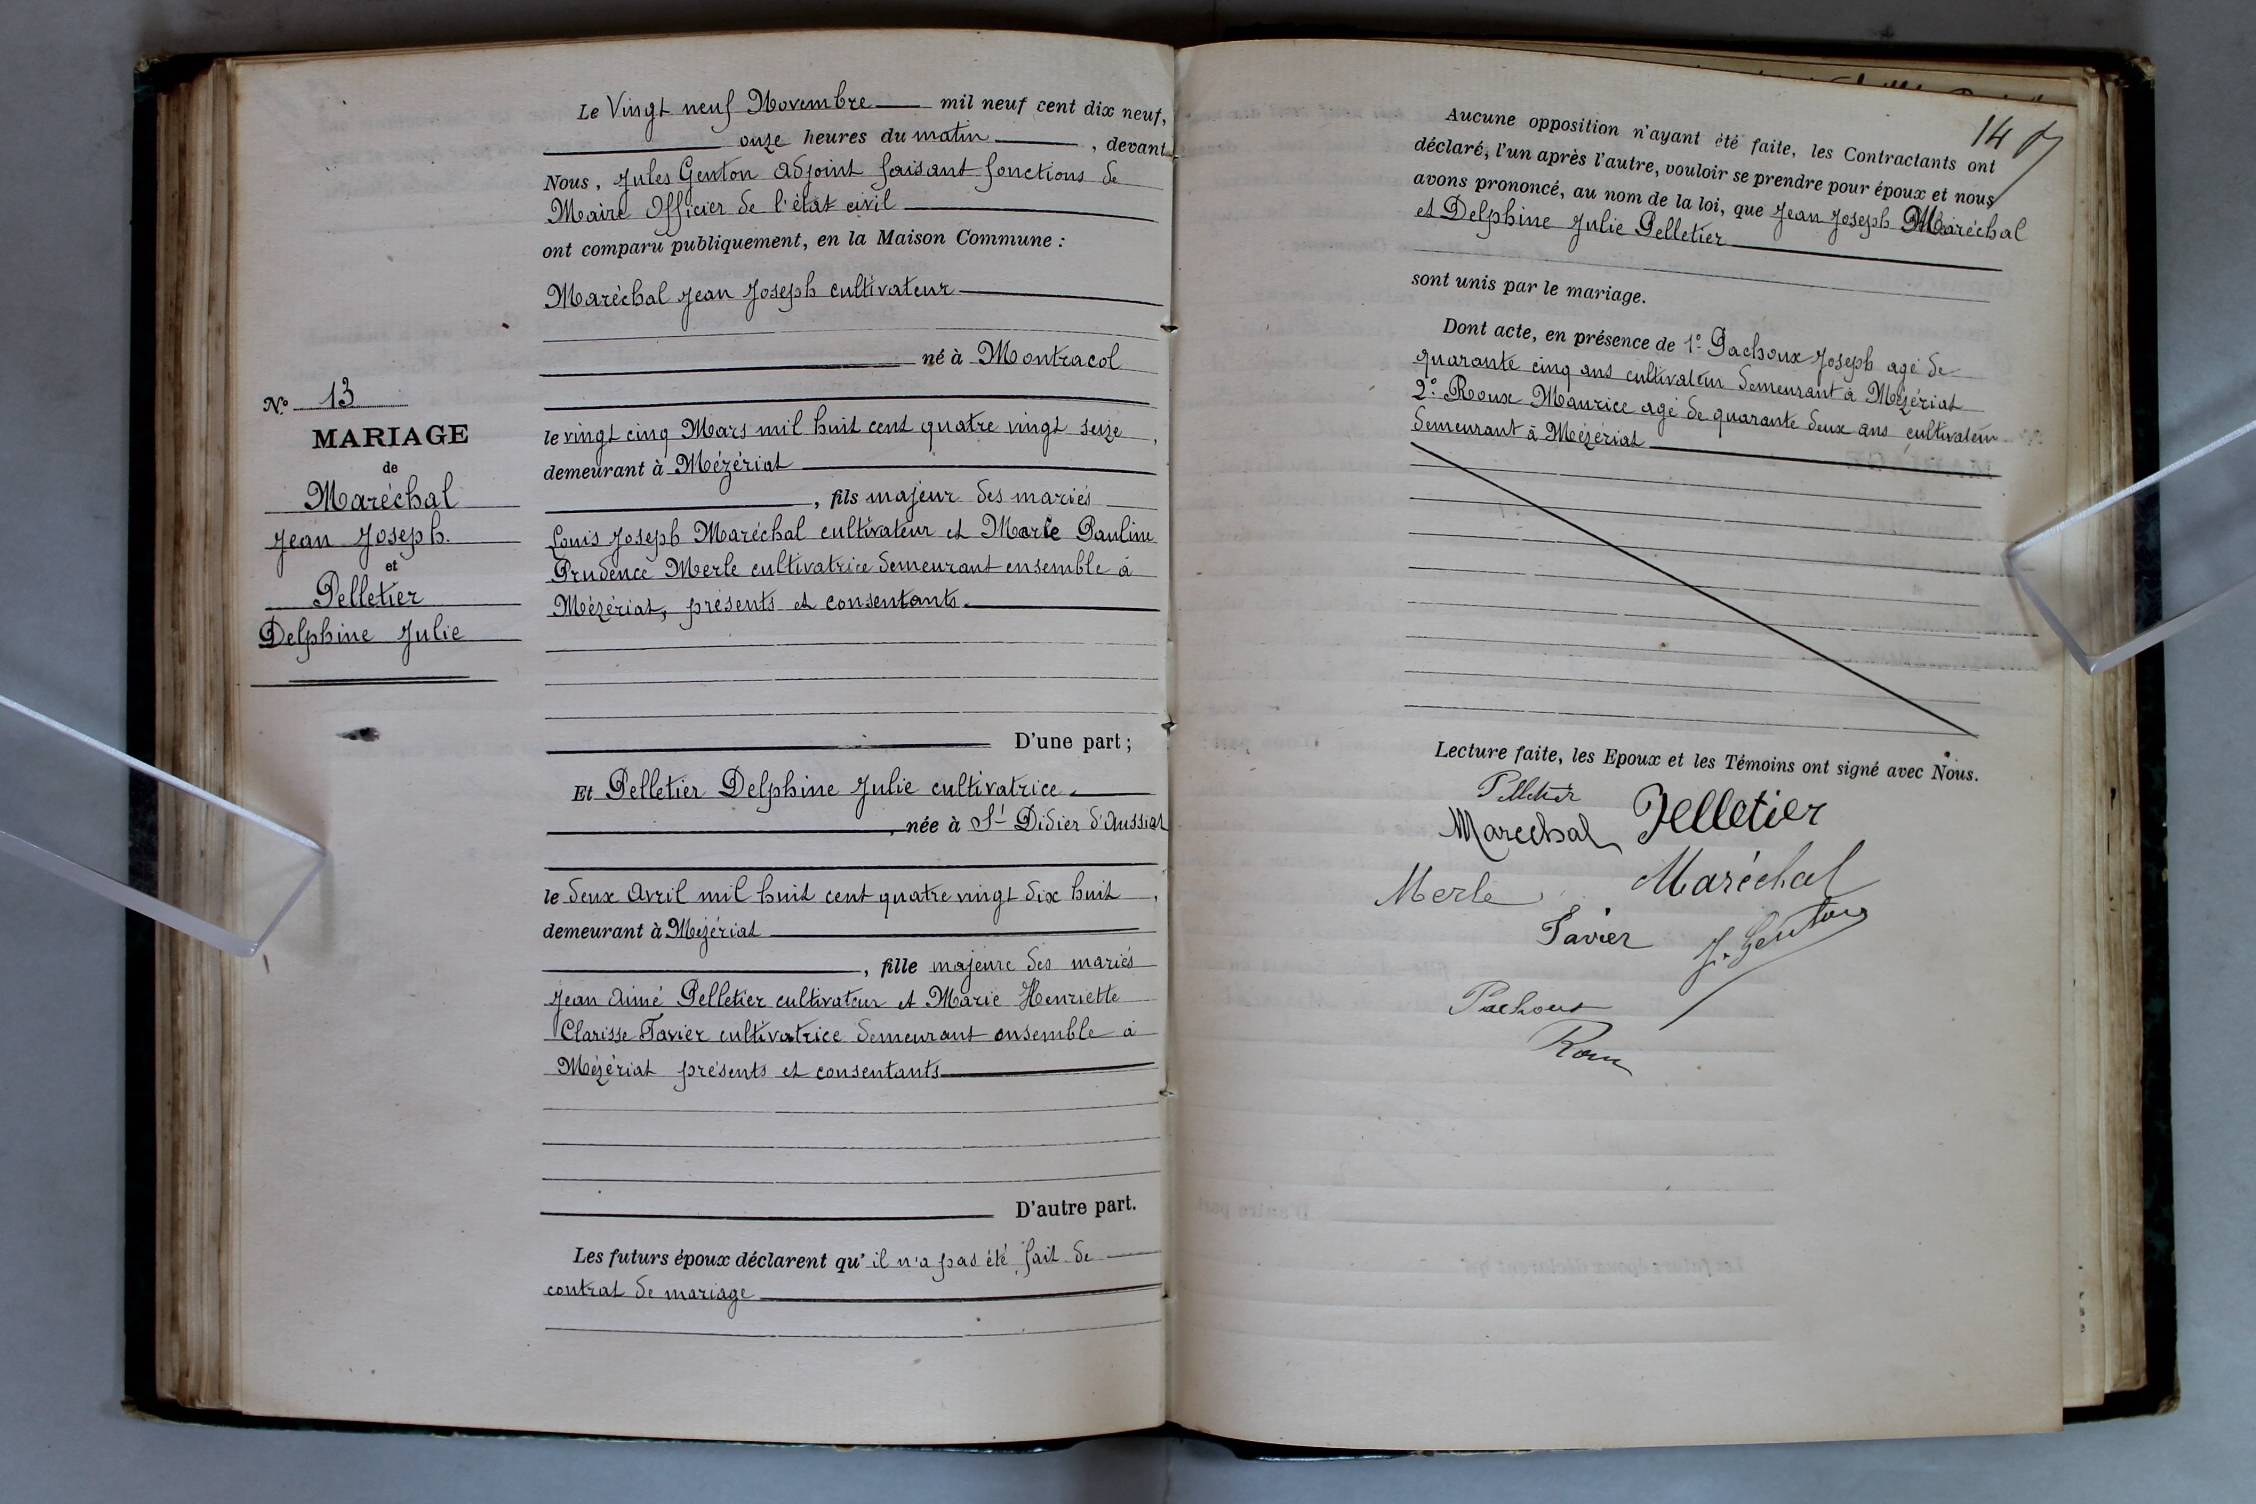 Le Vingt neuf Novembre mil neuf cent dix neuf,
onze heures du matin, devant
Nous, Jules Genton adjoint faisant fonctions de
Maire Officier de l'état civil
ont comparu publiquement, en la Maison Commune :
Maréchal Jean Joseph cultivateur
né à Montracol
le vingt cinq Mars mil huit cent quatre vingt seize,
demeurant à Mézériat
, fils majeur des mariés
Louis Joseph Maréchal cultivateur et Marie Pauline
Prudence Merle cultivatrice demeurant ensemble à
Mézériat, présents et consentants.
D'une part ;
Et Pelletier Delphine Julie cultivatrice
, née à St Didier d'Aussiat
le deux Avril mil huit cent quatre vingt dix huit,
demeurant à Mézériat
, fille majeure des mariés
Jean Aimé Pelletier cultivateur et Marie Henriette
Clarisse Tavier cultivatrice demeurant ensemble à
Mézériat présents et consentants
D'autre part.
Les futurs époux déclarent qu'il n'a pas été fait de
contrat de mariage
N.° 13
MARIAGE
de
Maréchal
Jean Joseph.
et
Pelletier
Delphine Julie
14
Aucune opposition n'ayant été faite, les Contractants ont
déclaré, l'un après l'autre, vouloir se prendre pour époux et nous
avons prononcé, au nom de la loi, que Jean Joseph Maréchal
et Delphine Julie Pelletier
sont unis par le mariage.
Dont acte, en présence de 1° Pachoux Joseph agé de
quarante cinq ans cultivateur demeurant à Mézériat
2° Roux Maurice agé de quarante deux ans cultivateur
demeurant à Mézériat
Lecture faite, les Epoux et les Témoins ont signé avec Nous.
Pelletier
Marechal Pelletier
Merle Maréchal
Tavier J. Genton
Pachoux
Roux